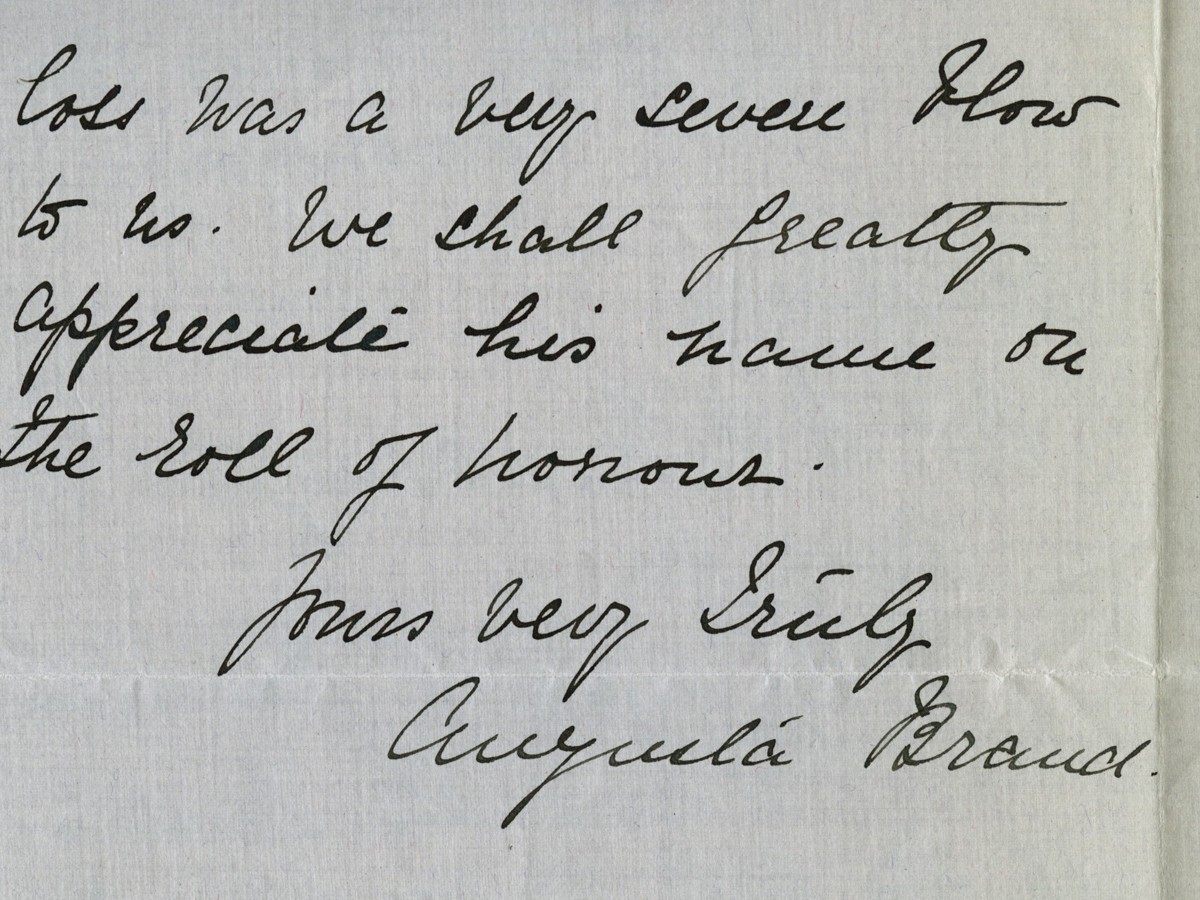 loss was a very severe blow
to us. We shall greatly
appreciate his name on
the roll of honour.
Yours very truly
Augusta Brand.